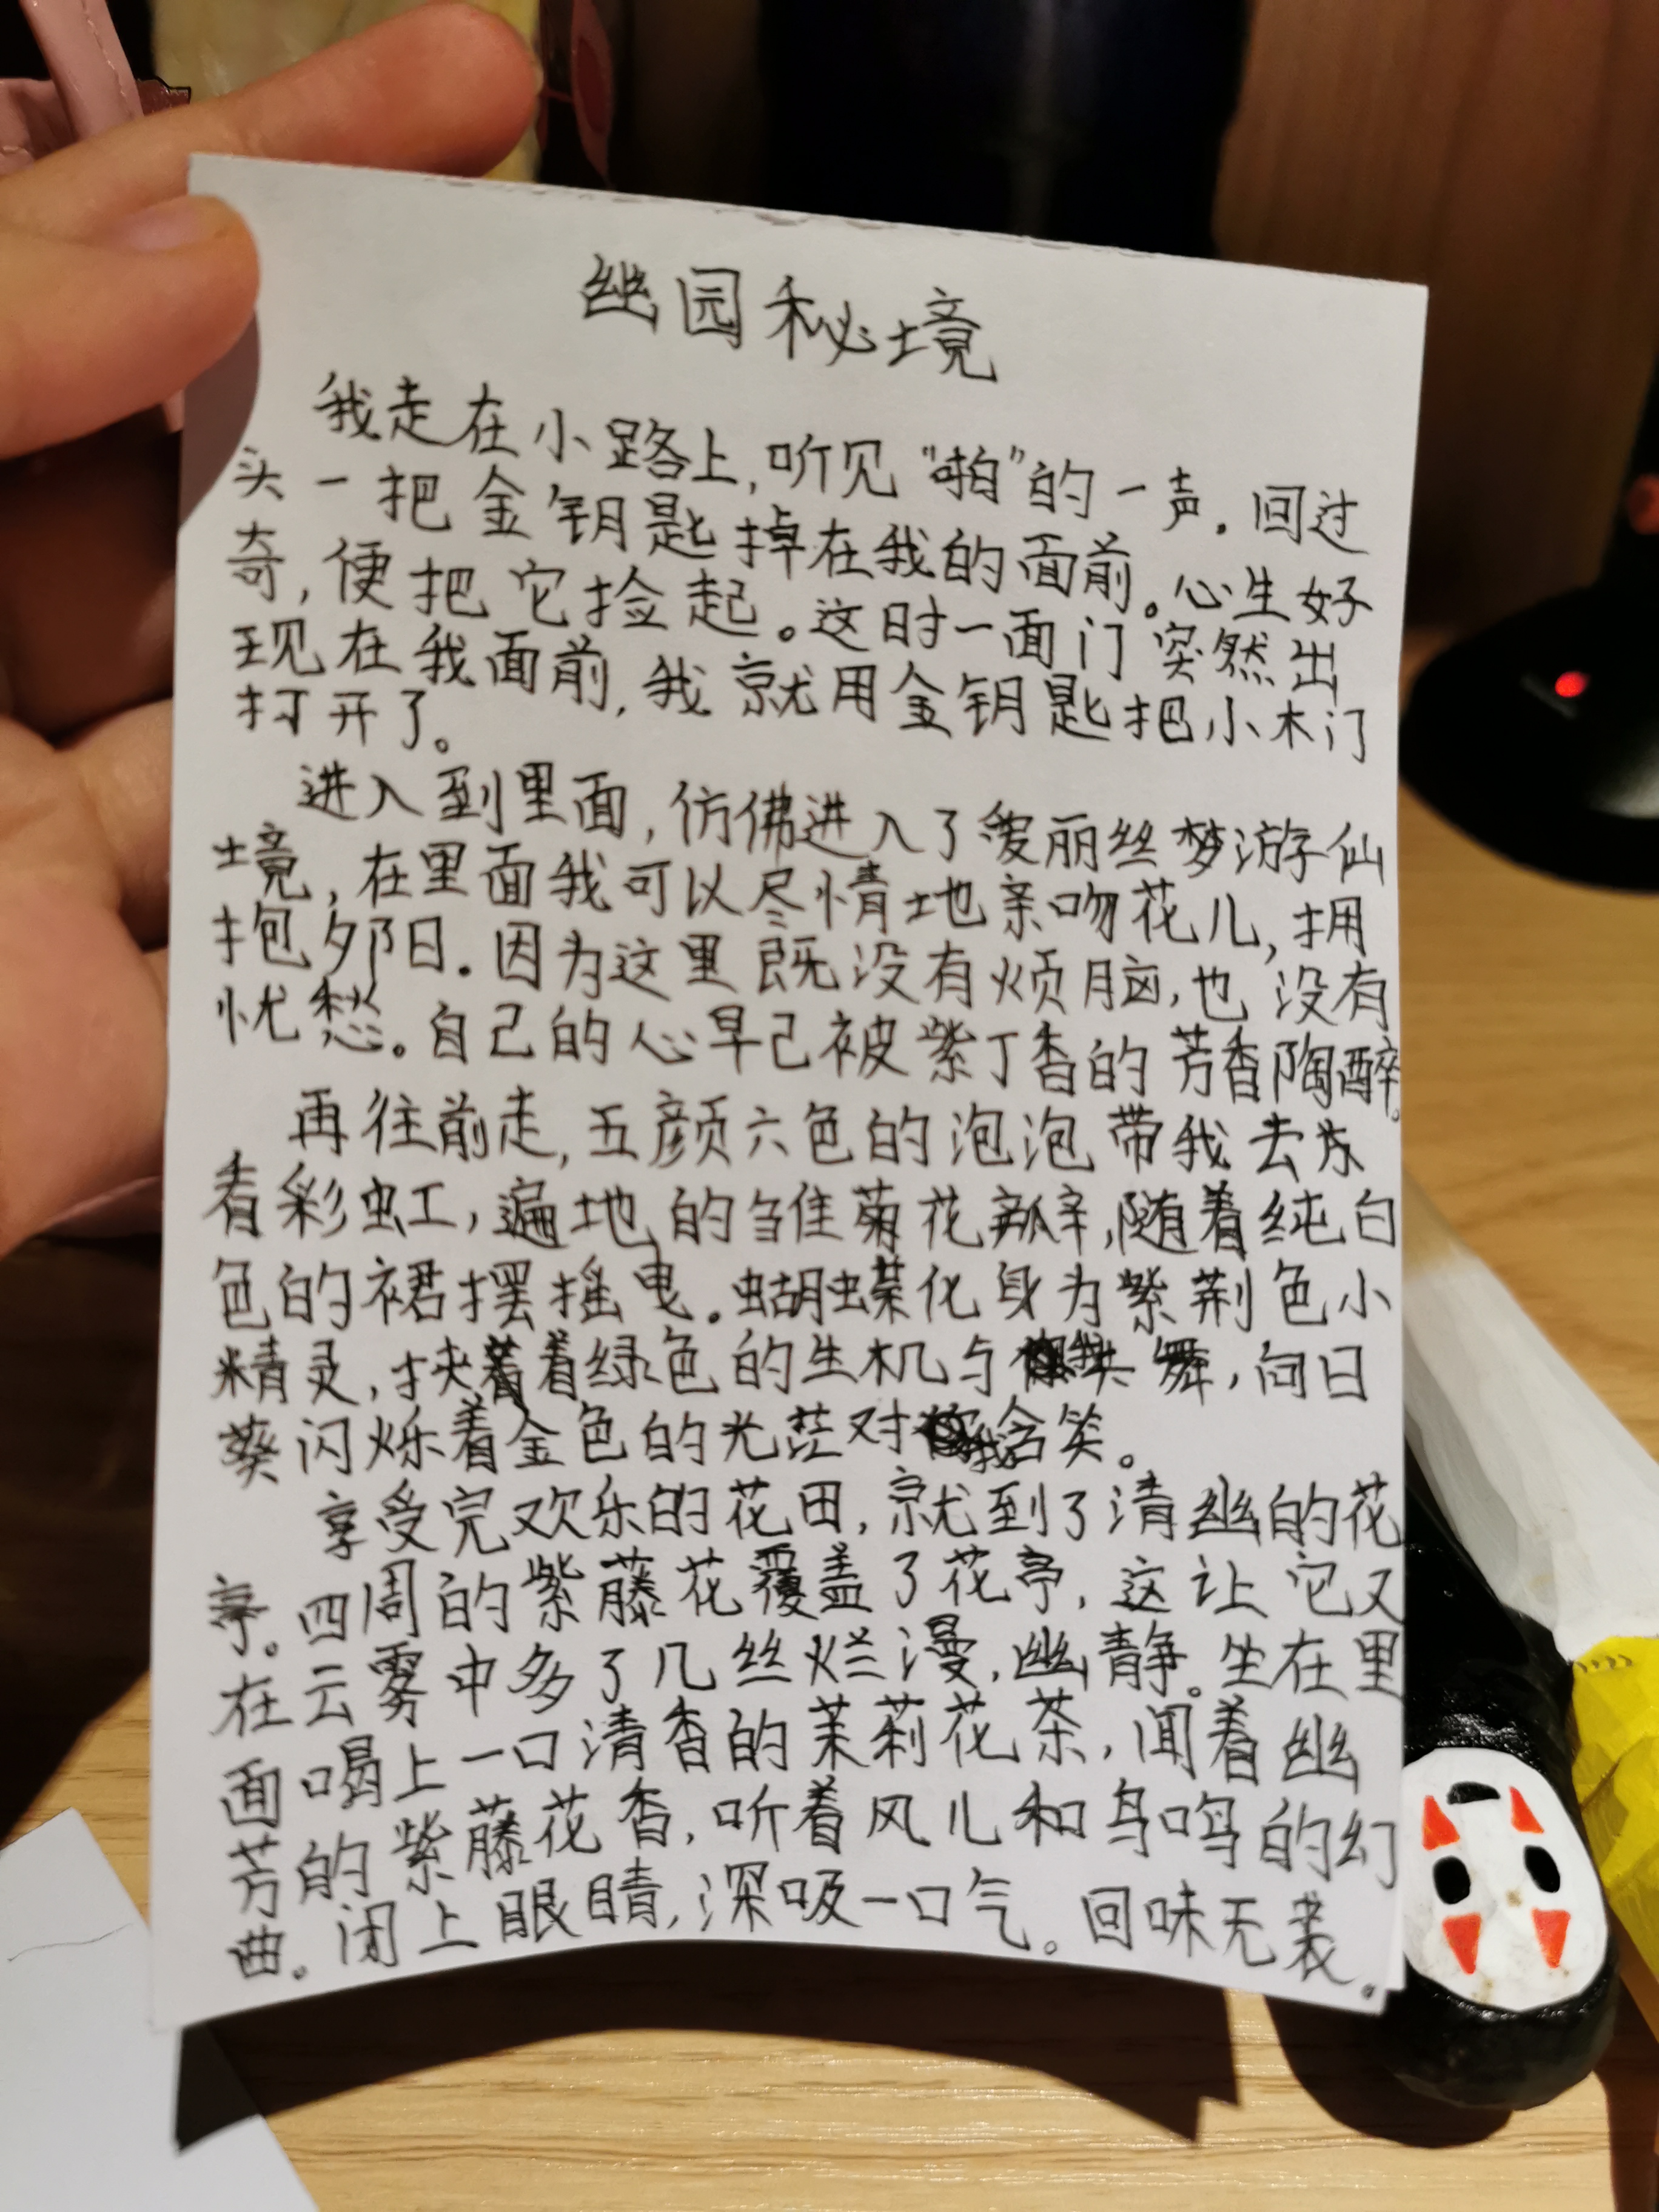 幽园秘境
我走在小路上,听见“啪”的一声。回过
头一把金钥匙掉在我的面前。心生好
奇,便把它捡起。这时一面门突然出
现在我面前,我就用金钥匙把小木门
打开了。
进入到里面,仿佛进入了爱丽丝梦游仙
境,在里面我可以尽情地亲吻花儿,拥
抱夕阳。因为这里既没有烦脑,也没有
忧愁。自己的心早已被紫丁香的芳香陶醉。
再往前走,五颜六色的泡泡带我去
看彩虹,遍地的雏菊花瓣,随着纯白
色的裙摆摇曳。蝴蝶化身为紫荆色小
精灵,挟着绿色的生机与我共舞,向日
葵闪烁着金色的光茫对我含笑。
享受完欢乐的花田,就到了清幽的花
亭。四周的紫藤花覆盖了花亭,这让它又
在云雾中多了几丝烂漫,幽静。坐在里
面喝上一口清香的茉莉花茶,闻着幽
芳的紫藤花香,听着风儿和鸟鸣的幻
曲。闭上眼睛,深吸一口气。回味无